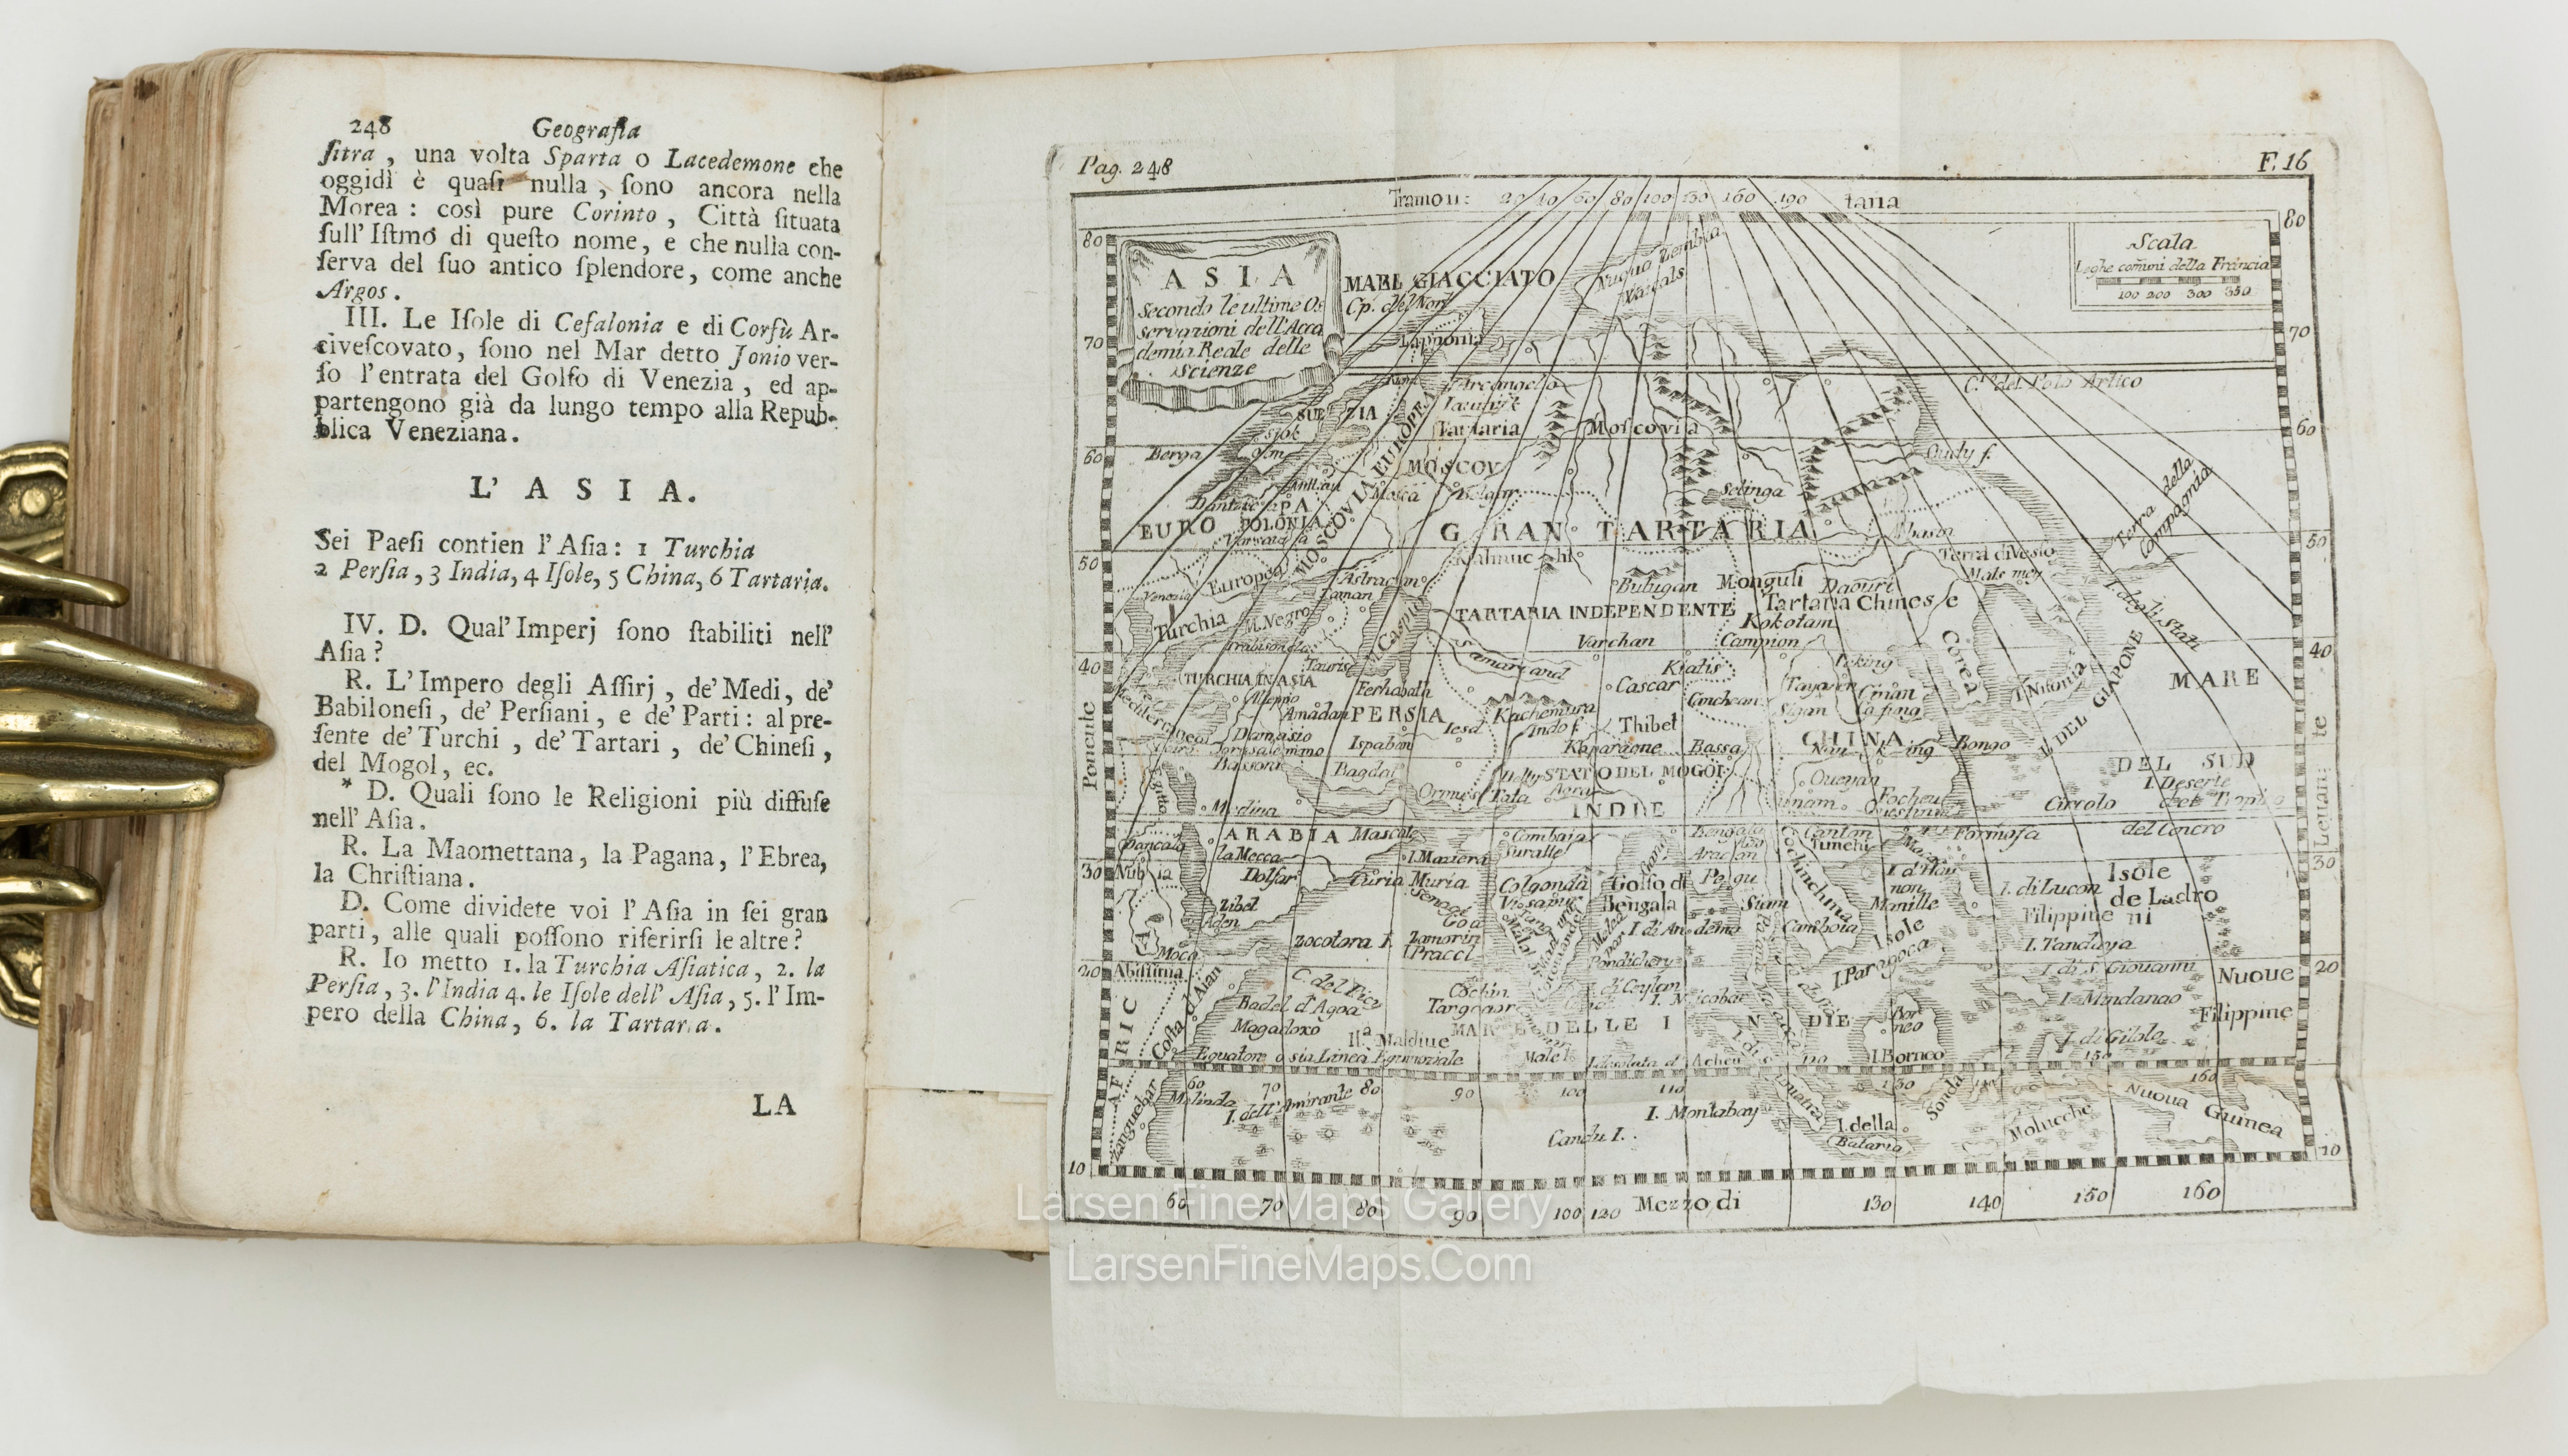 248 Geografia
ſitra, una volta Sparta o Lacedemone che
oggidì è quaſi nulla, ſono ancora nella
Morea: così pure Corinto, Città ſituata
ſull' Iſtmo di queſto nome, e che nulla con-
ſerva del ſuo antico ſplendore, come anche
Argos.
III. Le Iſole di Cefalonia e di Corfù Ar-
civeſcovato, ſono nel Mar detto Jonio ver-
ſo l'entrata del Golfo di Venezia, ed ap-
partengono già da lungo tempo alla Repub-
blica Veneziana.
L' A S I A.
Sei Paeſi contien l'Aſia: 1 Turchia
2 Perſia, 3 India, 4 Iſole, 5 China, 6 Tartaria.
IV. D. Qual' Imperj ſono ſtabiliti nell'
Aſia?
R. L'Impero degli Aſſirj, de' Medi, de'
Babiloneſi, de' Perſiani, e de' Parti: al pre-
ſente de' Turchi, de' Tartari, de' Chineſi,
del Mogol, ec.
* D. Quali ſono le Religioni più diffuſe
nell' Aſia.
R. La Maomettana, la Pagana, l'Ebrea,
la Chriſtiana.
D. Come dividete voi l'Aſia in ſei gran
parti, alle quali poſſono riferirſi le altre?
R. Io metto 1. la Turchia Aſiatica, 2. la
Perſia, 3. l'India 4. le Iſole dell' Aſia, 5. l'Im-
pero della China, 6. la Tartaria.
LA
Pag. 248
F. 16
Tramon: 20 40 60 80 100 130 160 190 tana
A S I A
Secondo le ultime Os
servazioni dell'Acca
demia Reale delle
Scienze
Scala
Leghe com̃uni della Francia
100 200 300 350
MARE GIACCIATO
Cp. del Nord
Nuova Zembla
Lapponia
C.o del Polo Artico
Arcangelo
Tartaria
Moscovia
SUE ZIA
Berga
MOSCOV
MOSCOVIA EUROPEA
Mosca
Selinga
EURO PA
POLONIA
GRAN TARTARIA
Terra della Compagnia
Turchia Europea
M. Negro
Astracan
M. Caspio
Bulugan
Monguli
Daouri
TARTARIA INDEPENDENTE
Tartaria Chinese
Kokotam
Varchan
Campion
I. degli Stati
Corea
I. DEL GIAPONE
Samarcand
Cascar
Peking
TURCHIA IN ASIA
Aleppo
Tauris
Ferhabath
Amadan
PERSIA
Damasio
Ispahan
Iesd
Kachemira
Thibet
CHINA
Bongo
MARE
DEL SUD
Bassora
Bagdat
Ormus
Tata
STATO DEL MOGOL
INDIE
Circolo
del Cancro
Medina
ARABIA
Mascate
la Mecca
Dolfar
Curia Muria
Cambaja
Suratte
Bengala
Aracan
Cantan
Formosa
Nubia
Zibel
Aden
Moca
Abissinia
Zocotora I.
Golconda
Visapur
Goa
Golfo di
Bengala
Pegu
Siam
Camboia
Cochinchina
Manille
I. di Lucon
Isole
de Ladro
ni
Filippine
I. Tandaya
I. di S. Giovanni
I. Mindanao
I. di Gilolo
Nuove
Filippine
Isole
I. Paragoca
Pondichery
I. di Ceylan
Cochin
Costa d'Aian
Badel d'Agoa
Magadoxo
MARE DELLE INDIE
Maldive
Equatore o sia Linea Equinoziale
I. Borneo
AFRICA
Zanguebar
Melinda
I. dell'Amirante
Candu I.
I. Montabay
I. della
Sonda
Batavia
Molucche
Nuova Guinea
Ponente
Levante
Mezzo di
80 70 60 50 40 30 20 10
60 70 80 90 100 120 130 140 150 160
Larsen Fine Maps Gallery
LarsenFineMaps.Com